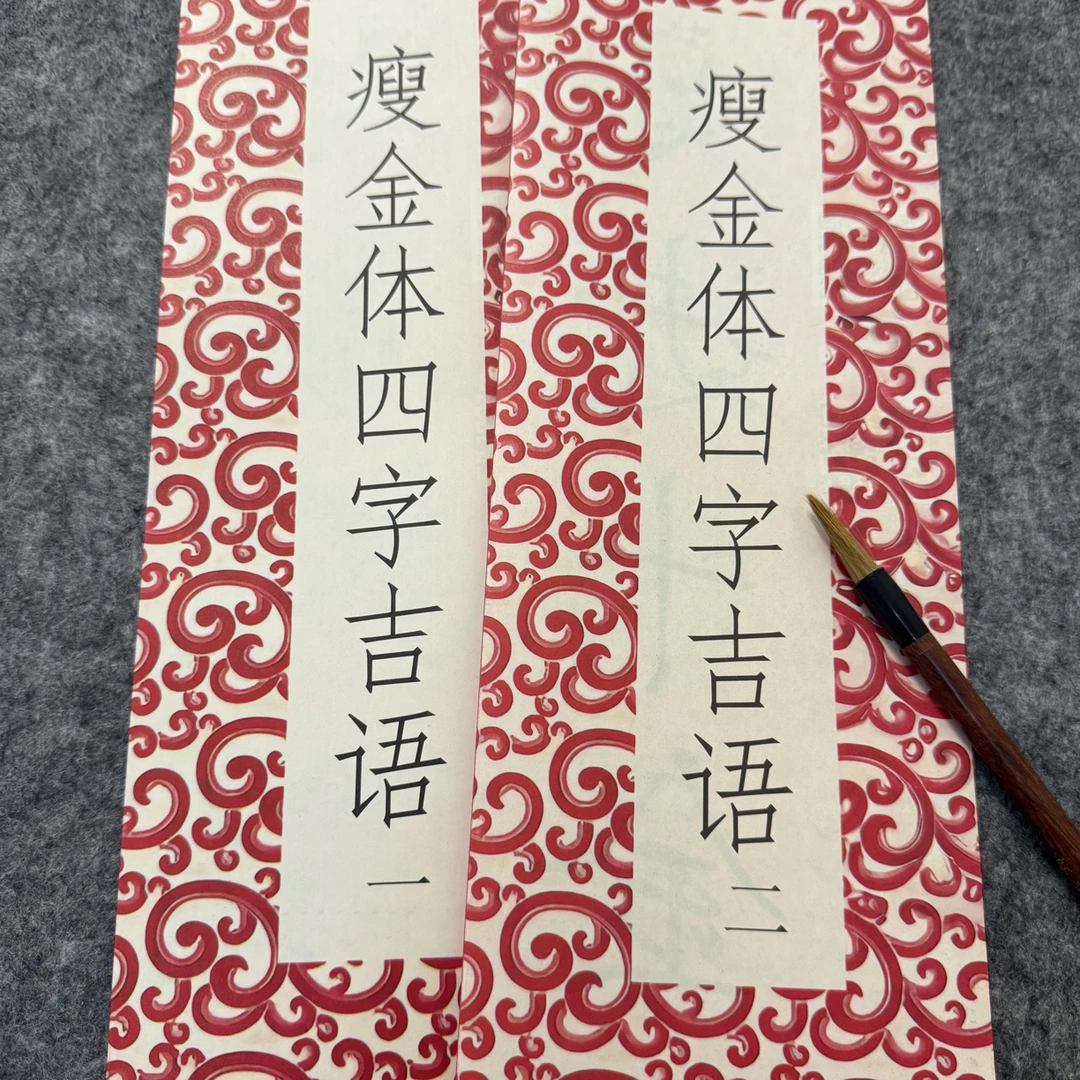 瘦金体四字吉语一
瘦金体四字吉语二